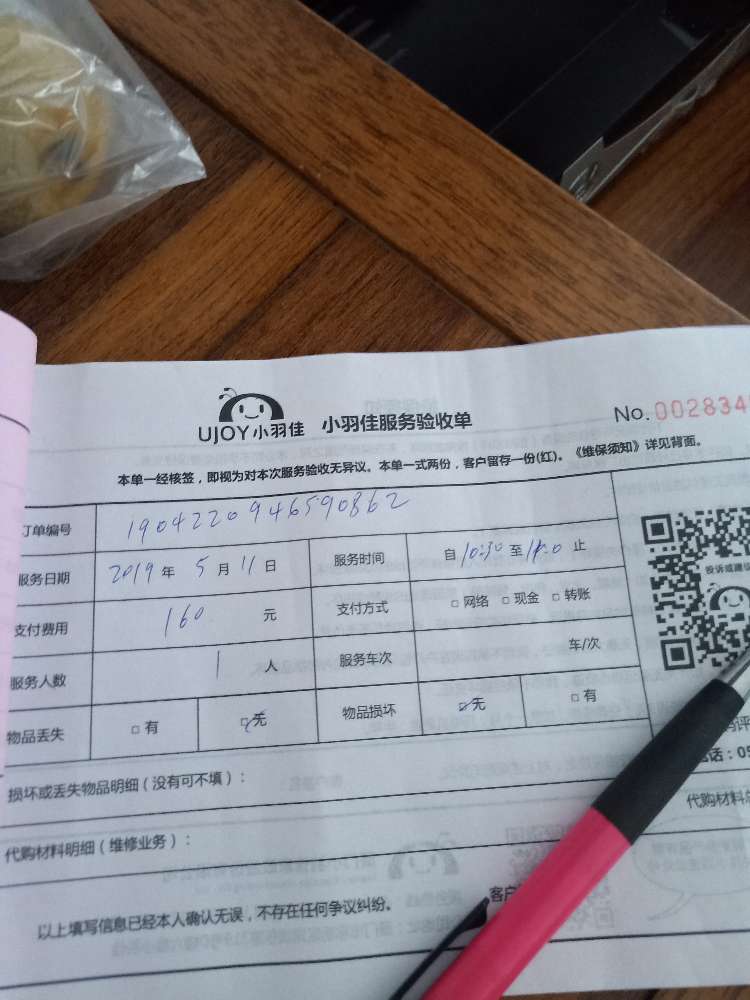 UJOY小羽佳 小羽佳服务验收单 No. 002834
本单一经核签，即视为对本次服务验收无异议。本单一式两份，客户留存一份(红)。《维保须知》详见背面。
订单编号 1904220946590862
服务日期 2019 年 5 月 11 日 服务时间 自 10:30 至 止
支付费用 160 元 支付方式 □ 网络 □ 现金 □ 转账
服务人数 1 人 服务车次 车/次
物品丢失 □ 有 □ 无 物品损坏 □ 无 □ 有
损坏或丢失物品明细（没有可不填）：
代购材料明细（维修业务）： 代购材料
以上填写信息已经本人确认无误，不存在任何争议纠纷。 客户
投诉或建议
电话：05